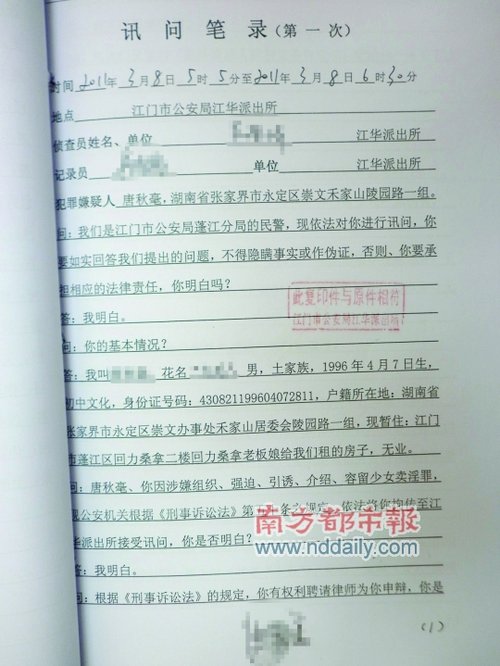 讯问笔录(第一次)
时间 2011年3月8日5时5分至2011年3月8日6时30分
地点 江门市公安局江华派出所
侦查员姓名、单位 江华派出所
记录员 单位 江华派出所
犯罪嫌疑人 唐秋毫,湖南省张家界市永定区崇文禾家山陵园路一组。
问:我们是江门市公安局蓬江分局的民警,现依法对你进行讯问,你
要如实回答我们提出的问题,不得隐瞒事实或作伪证,否则、你要承
担相应的法律责任,你明白吗?
此复印件与原件相符
答:我明白。
江门市公安局江华派出所
问:你的基本情况?
答:我叫 花名 男,土家族,1996年4月7日生,
初中文化,身份证号码:430821199604072811,户籍所在地:湖南省
张家界市永定区崇文办事处禾家山居委会陵园路一组,现暂住:江门
市蓬江区回力桑拿二楼回力桑拿老板娘给我们租的房子,无业。
问:唐秋毫、你因涉嫌组织、强迫、引诱、介绍、容留少女卖淫罪,
公安机关根据《刑事诉讼法》第 条之规定,依法将你拘传至江
南方都市報
华派出所接受讯问,你是否明白?
www.nddaily.com
答:我明白。
问:根据《刑事诉讼法》的规定,你有权利聘请律师为你申辩,你是
(1)